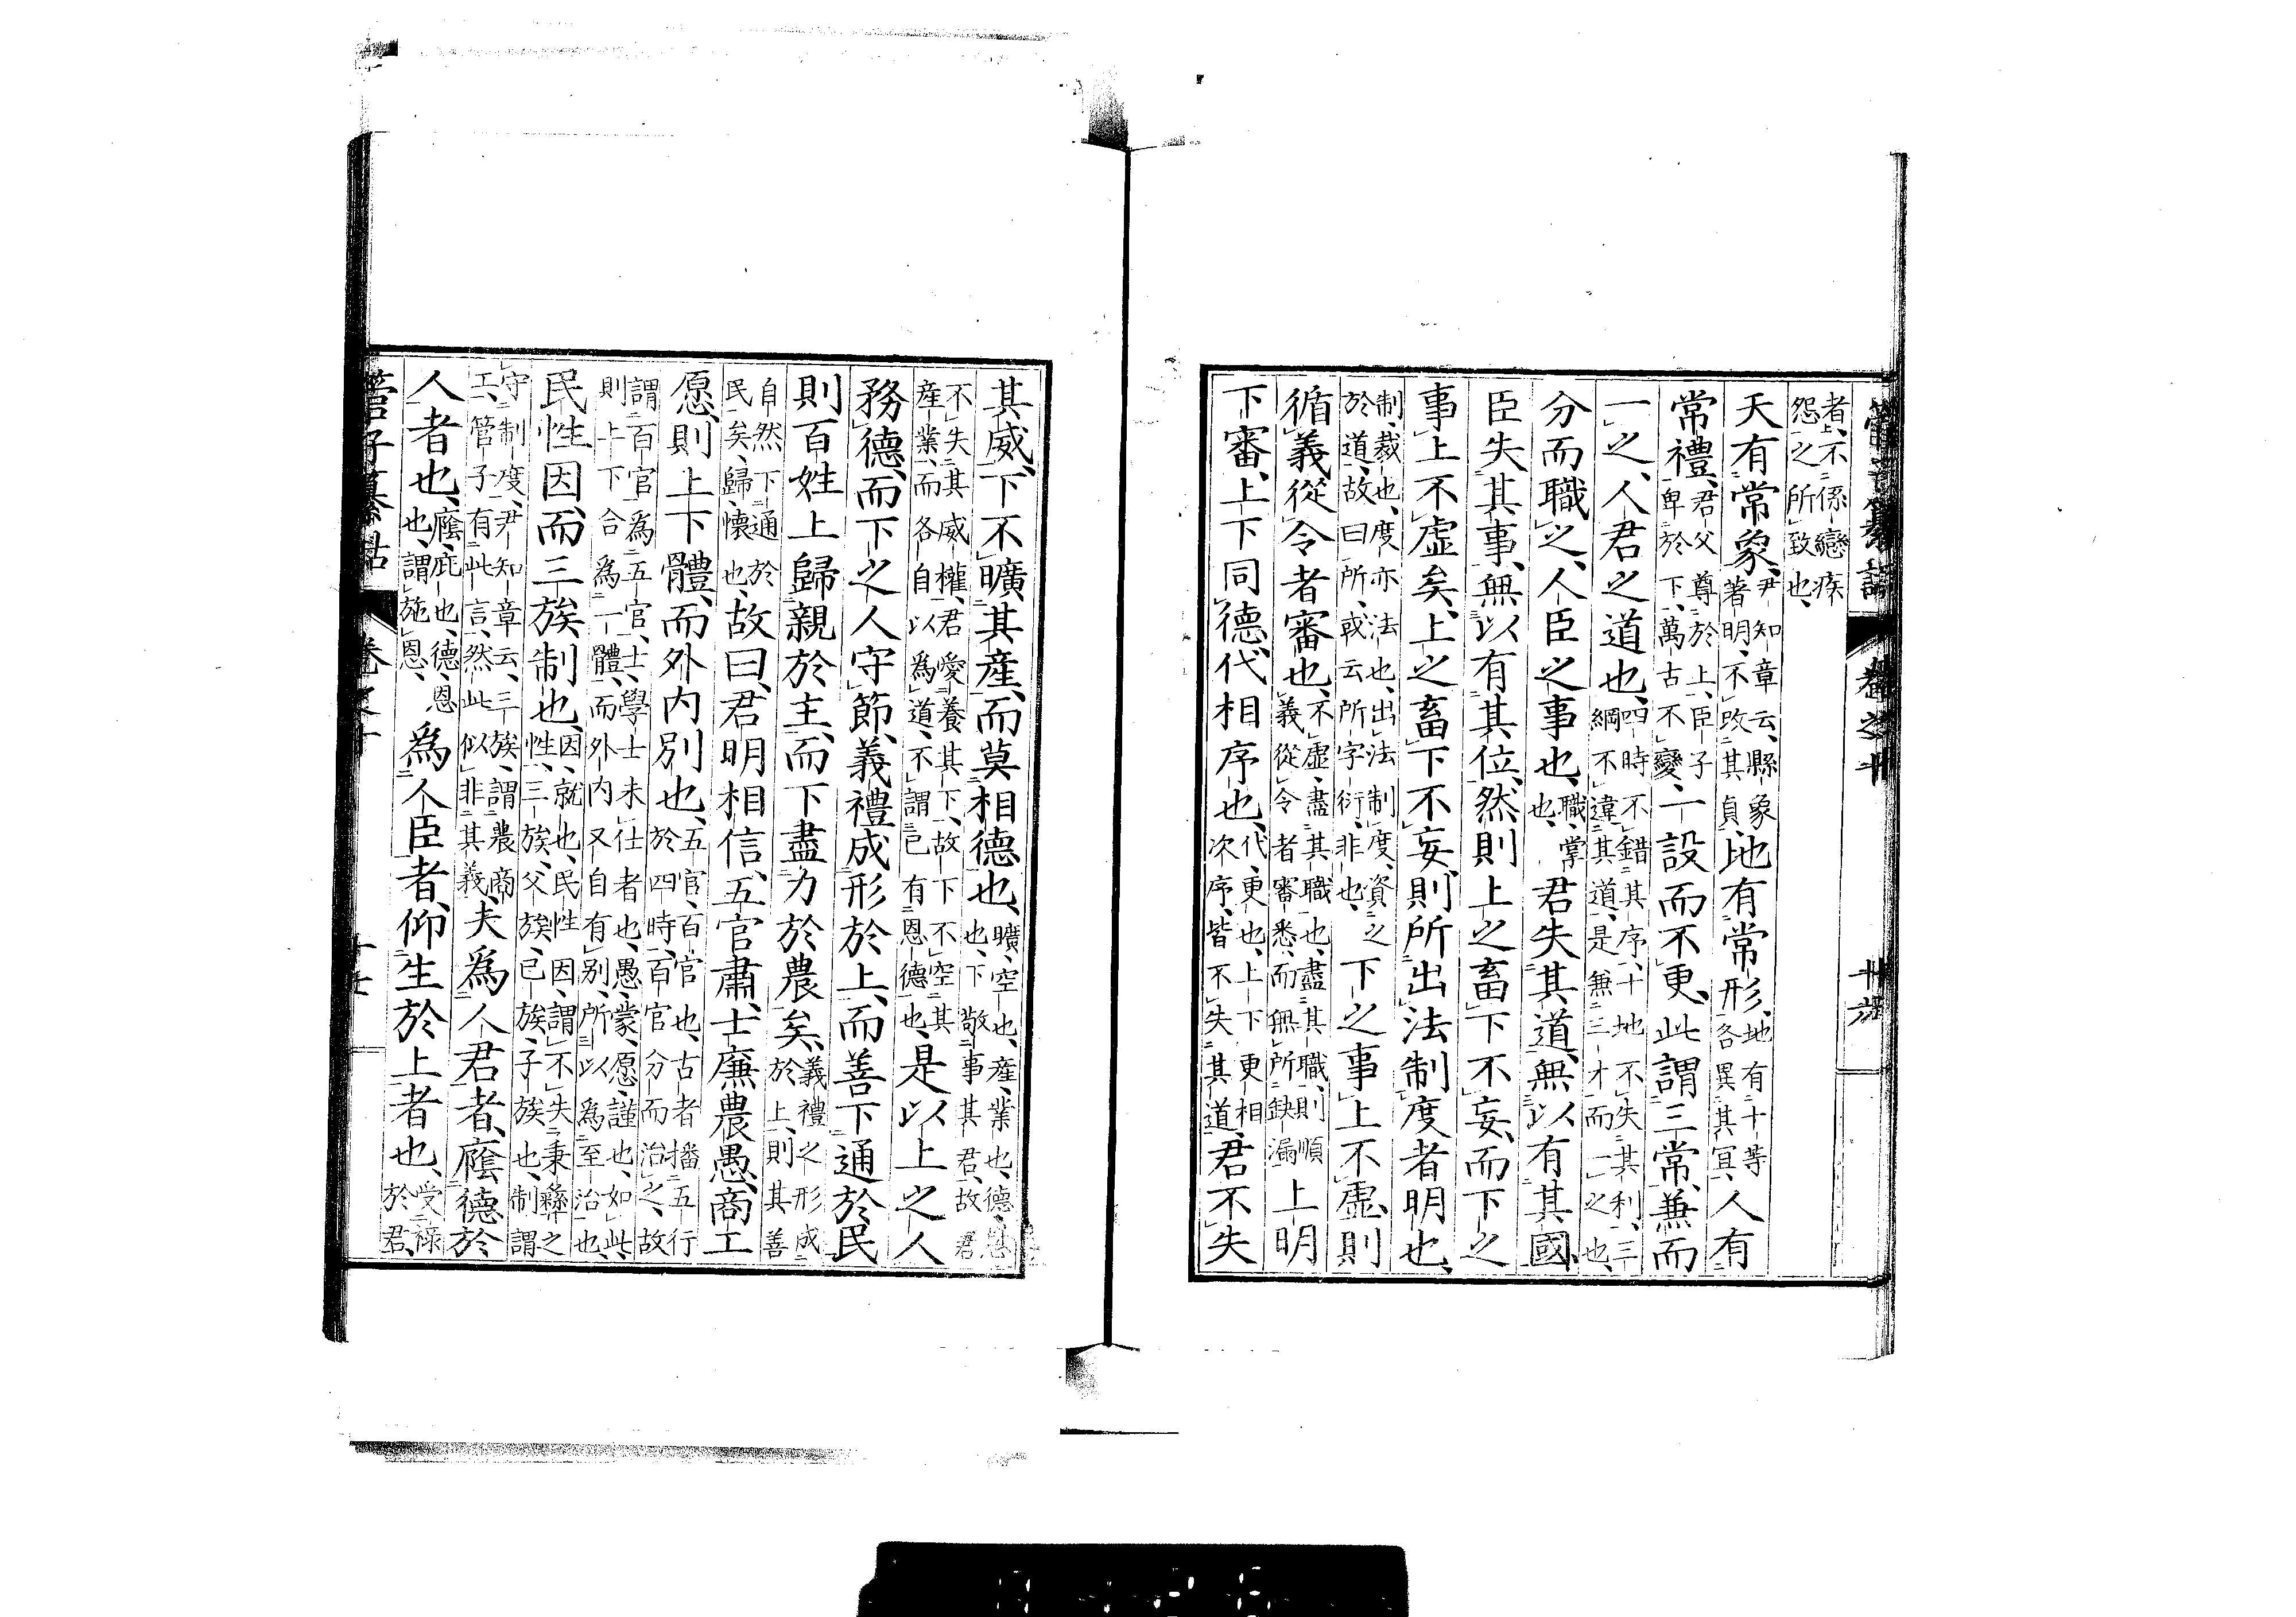 管子纂詁 卷之十 十六
者、不係戀疾怨之所致也、
天有常象、尹知章云、縣象著明、不改其貞、地有常形、地有十等各異其冝、人有
常禮、君父尊於上、臣子卑於下、萬古不變、一設而不更、此謂三常、兼而
一之、人君之道也、四時不錯其序、十地不失其利、三綱不違其道、是兼三才而一之也、
分而職之、人臣之事也、職、掌也、君失其道、無以有其國、
臣失其事、無以有其位、然則上之畜下不妄、而下之
事上不虛矣、上之畜下不妄、則所出法制度者明也、
制、裁也、度亦法也、出法制度、資之於道、故曰所、或云所字衍、非也、下之事上不虛、則
循義從令者審也、不虛、盡其職也、盡其職、則順義從令者審悉、而無所缺漏、上明
下審、上下同德、代相序也、代、更也、上下更相次序、皆不失其道、君不失
其威、下不曠其產、而莫相德也、曠、空也、產、業也、德、恩也、下敬事其君、故君
不失其威權、君愛養其下、故下不空其產業、而各自以爲道、不謂已有恩德也、是以上之人
務德、而下之人守節、義禮成形於上、而善下通於民
則百姓上歸親於主、而下盡力於農矣、義禮之形成於上、則其善
自然下通於民矣、歸、懷也、故曰、君明相信、五官肅、士廉農愚、商工
愿、則上下體、而外內別也、五官、百官也、古者播五行於四時、百官分而治之、故
謂百官爲五官、士、學士未仕者也、愚、蒙、愿、謹也、如此、則上下合爲一體、而外內又自有別、所以爲至治也、
民性因、而三族制也、因、就也、民性因、謂不失秉彝之性、三族、父族、己族、子族也、制謂
守制度、尹知章云、三族、謂農商工、管子有此言、然此似非其義、夫爲人君者、廕德於
人者也、廕、庇也、德、恩也、謂施恩、爲人臣者、仰生於上者也、受祿於君、
管子纂詁 卷之十